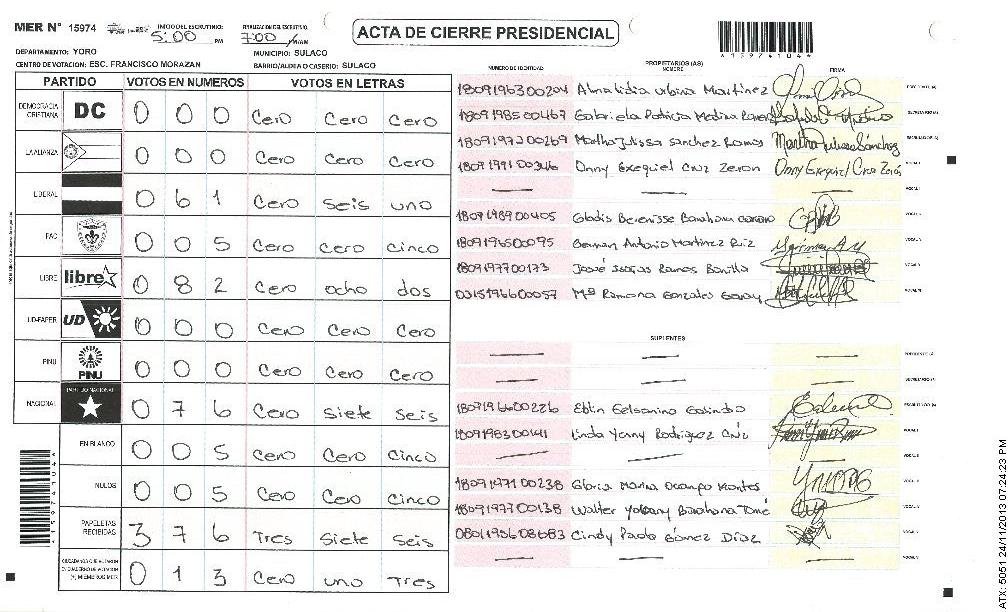 MER N° 15974
INICIO DEL ESCRUTINIO: 5:00 PM
FINALIZACION DEL ESCRUTINIO: 7:00
ACTA DE CIERRE PRESIDENCIAL
DEPARTAMENTO: YORO
MUNICIPIO: SULACO
CENTRO DE VOTACION: ESC. FRANCISCO MORAZAN
BARRIO/ALDEA O CASERIO: SULACO
PARTIDO VOTOS EN NUMEROS VOTOS EN LETRAS
DEMOCRACIA CRISTIANA DC 0 0 0 Cero Cero Cero
LA ALIANZA 0 0 0 Cero Cero Cero
LIBERAL 0 6 1 Cero seis uno
PAC 0 0 5 Cero Cero Cinco
LIBRE libre 0 8 2 Cero ocho dos
UD-FAPER UD 0 0 0 Cero Cero Cero
PINU PINU 0 0 0 Cero Cero Cero
NACIONAL PARTIDO NACIONAL 0 7 6 Cero Siete Seis
EN BLANCO 0 0 5 Cero Cero Cinco
NULOS 0 0 5 Cero Cero Cinco
PAPELETAS RECIBIDAS 3 7 6 Tres Siete Seis
CIUDADANOS QUE VOTARON EN CUADERNO DE VOTACION (+) MIEMBROS MER 0 1 3 Cero uno Tres
NUMERO DE IDENTIDAD PROPIETARIOS (AS) NOMBRE FIRMA
1809196300204 Alma Lidia Urbina Martinez PRESIDENTE (A)
1809198500467 Gabriela Patricia Medina SECRETARIO (A)
1809197300269 Martha Julissa Sanchez Ramos ESCRUTADOR (A)
1809199100346 Onny Exequiel Cruz Zeron Onny Exequiel Cruz Zeron VOCAL I
VOCAL II
1809198900405 Gladis Berenisse Barahona
1809196500095 German Antonio Martinez Ruiz
1809197700173 José Isaias Ramos Bonilla
0315196600057 Mª Ramona Gonzales
SUPLENTES
PRESIDENTE (A)
SECRETARIO (A)
1809196600226 Eblin Gelsomino Galindo ESCRUTADOR (A)
1809198300141 Linda Yenny Rodriguez Cruz VOCAL I
VOCAL II
1809197100238 Gloria Marina Ocampo Montes
1809197700138 Walter Yobany Barahona Tomé
Cindy Paola Gómez Díaz
ATX: 5051 24/11/2013 07:24:23 PM